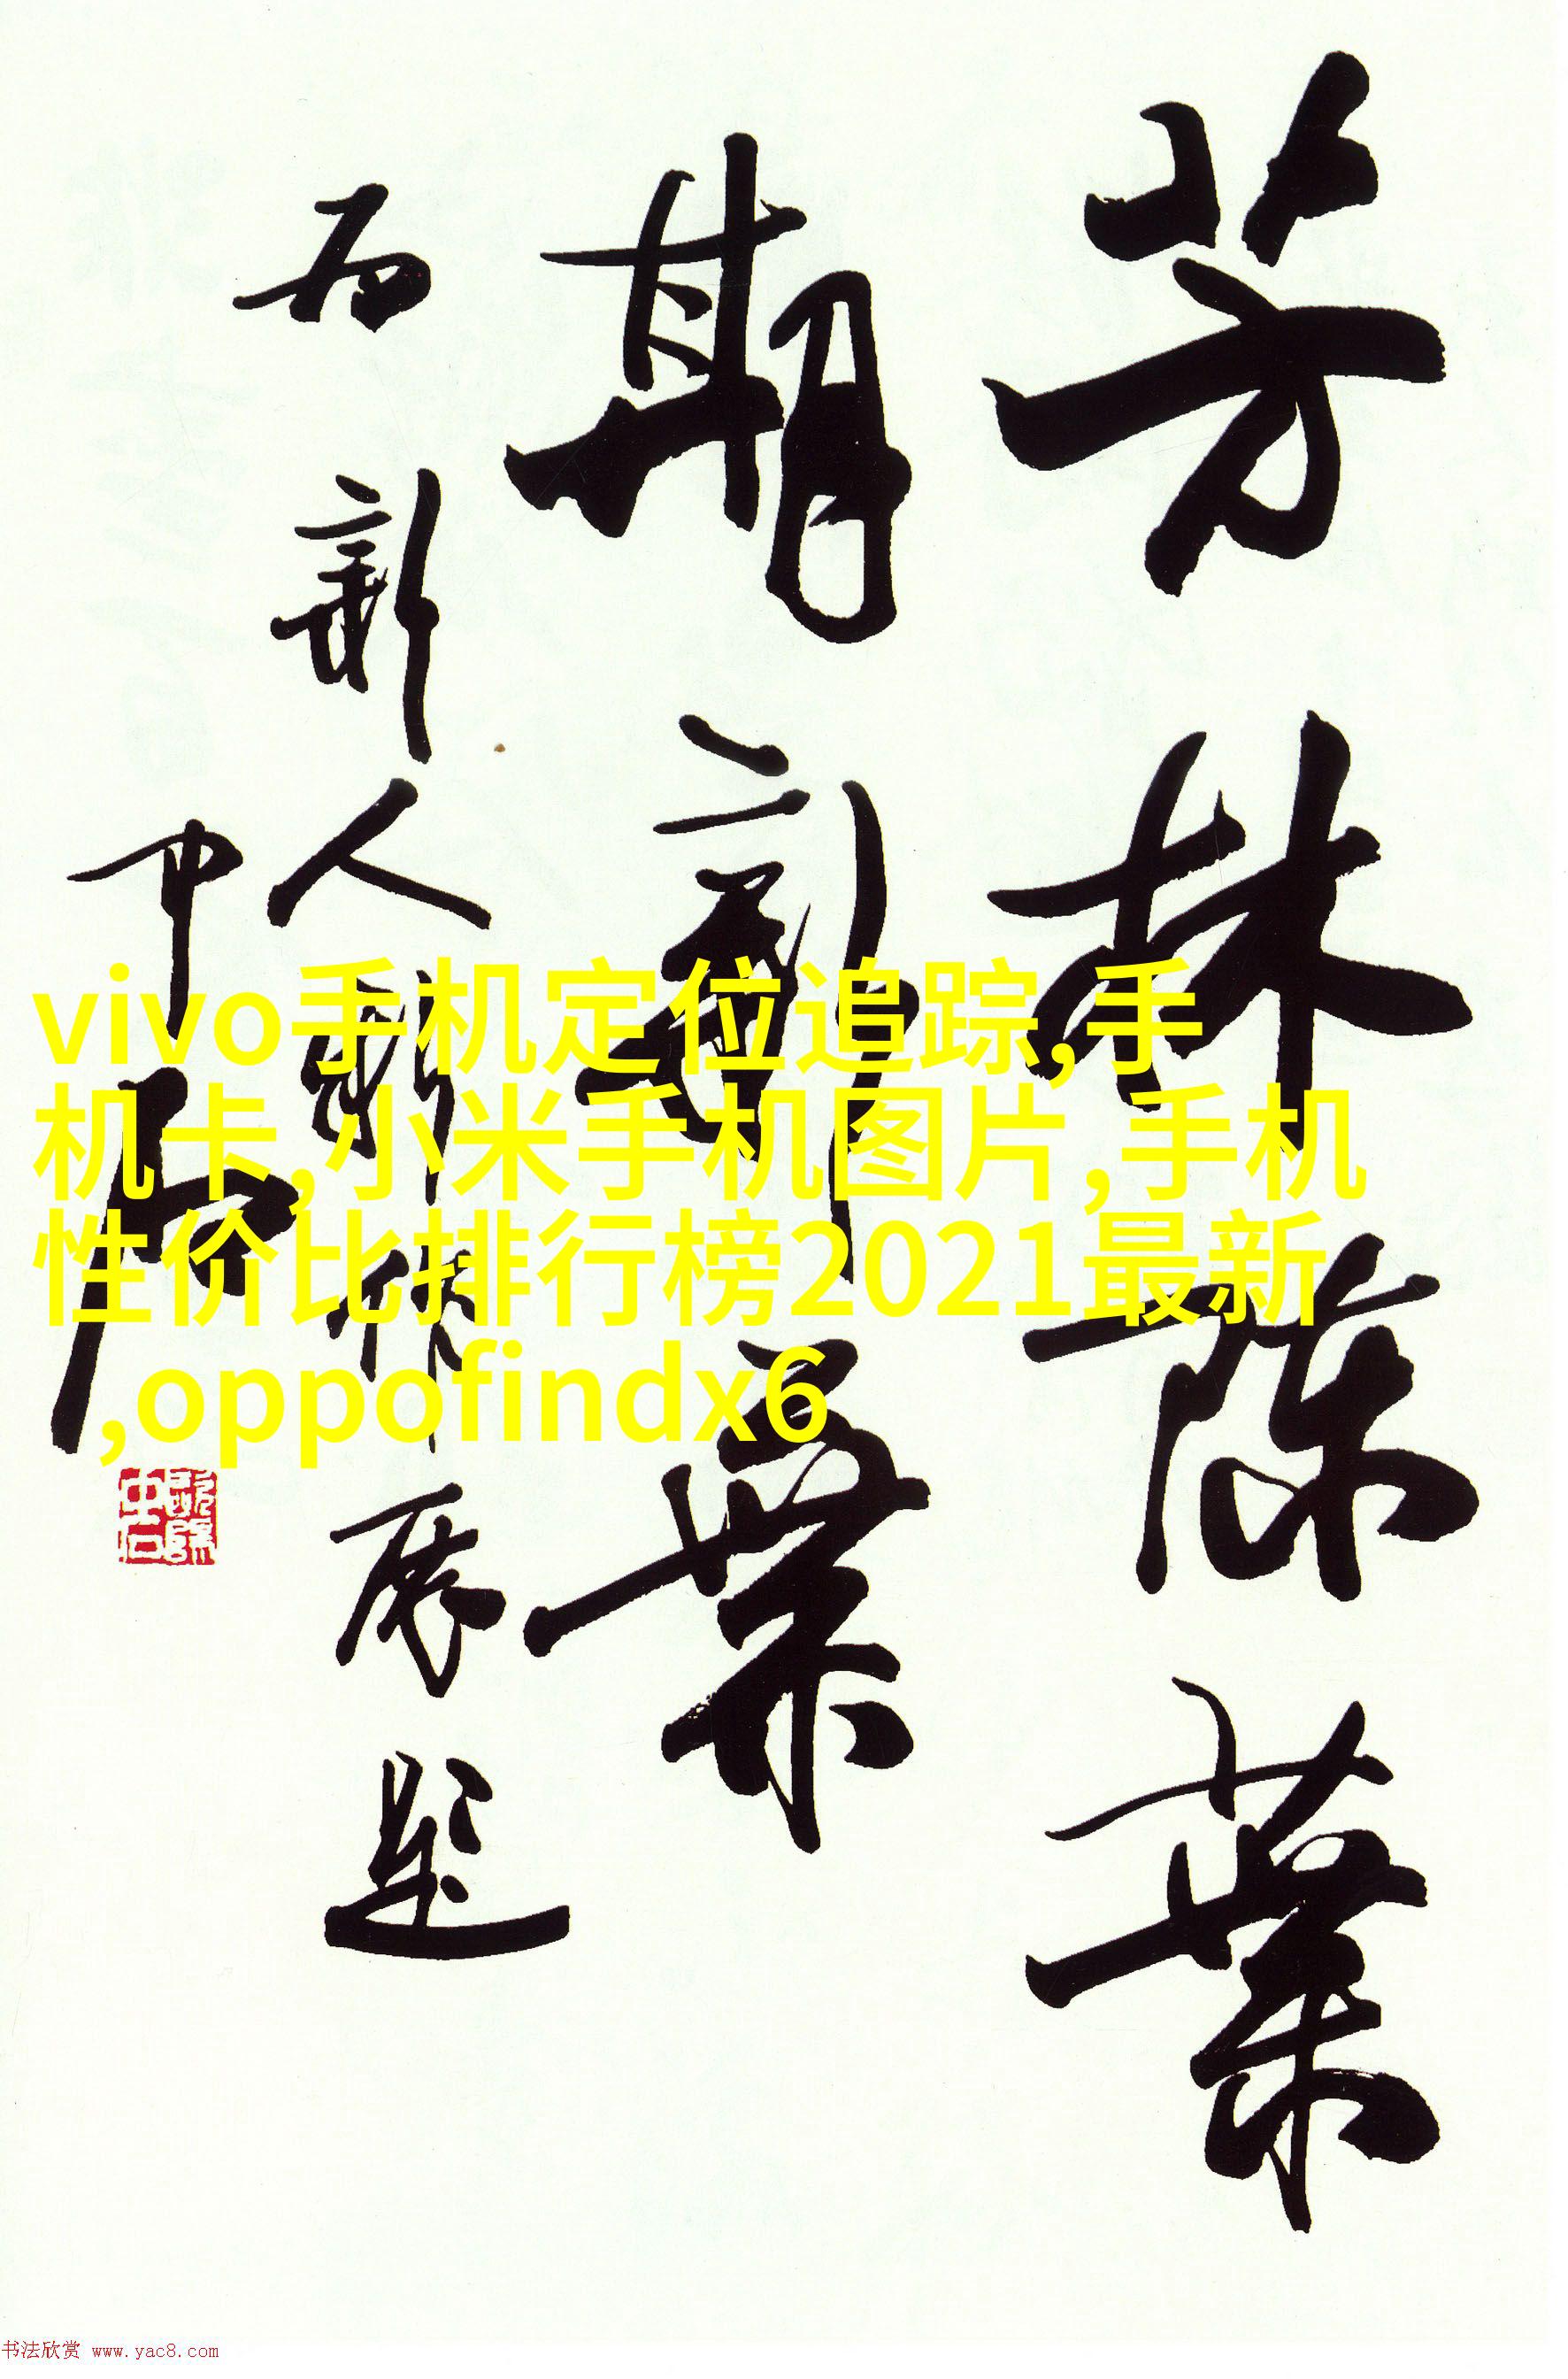 芳林陈葉
期新葉
为新人新作展题
中石
vivo手机定位追踪,手
机卡,小米手机图片,手机
性价比排行榜2021最新
,oppofindx6
书法欣赏 www.yac8.com